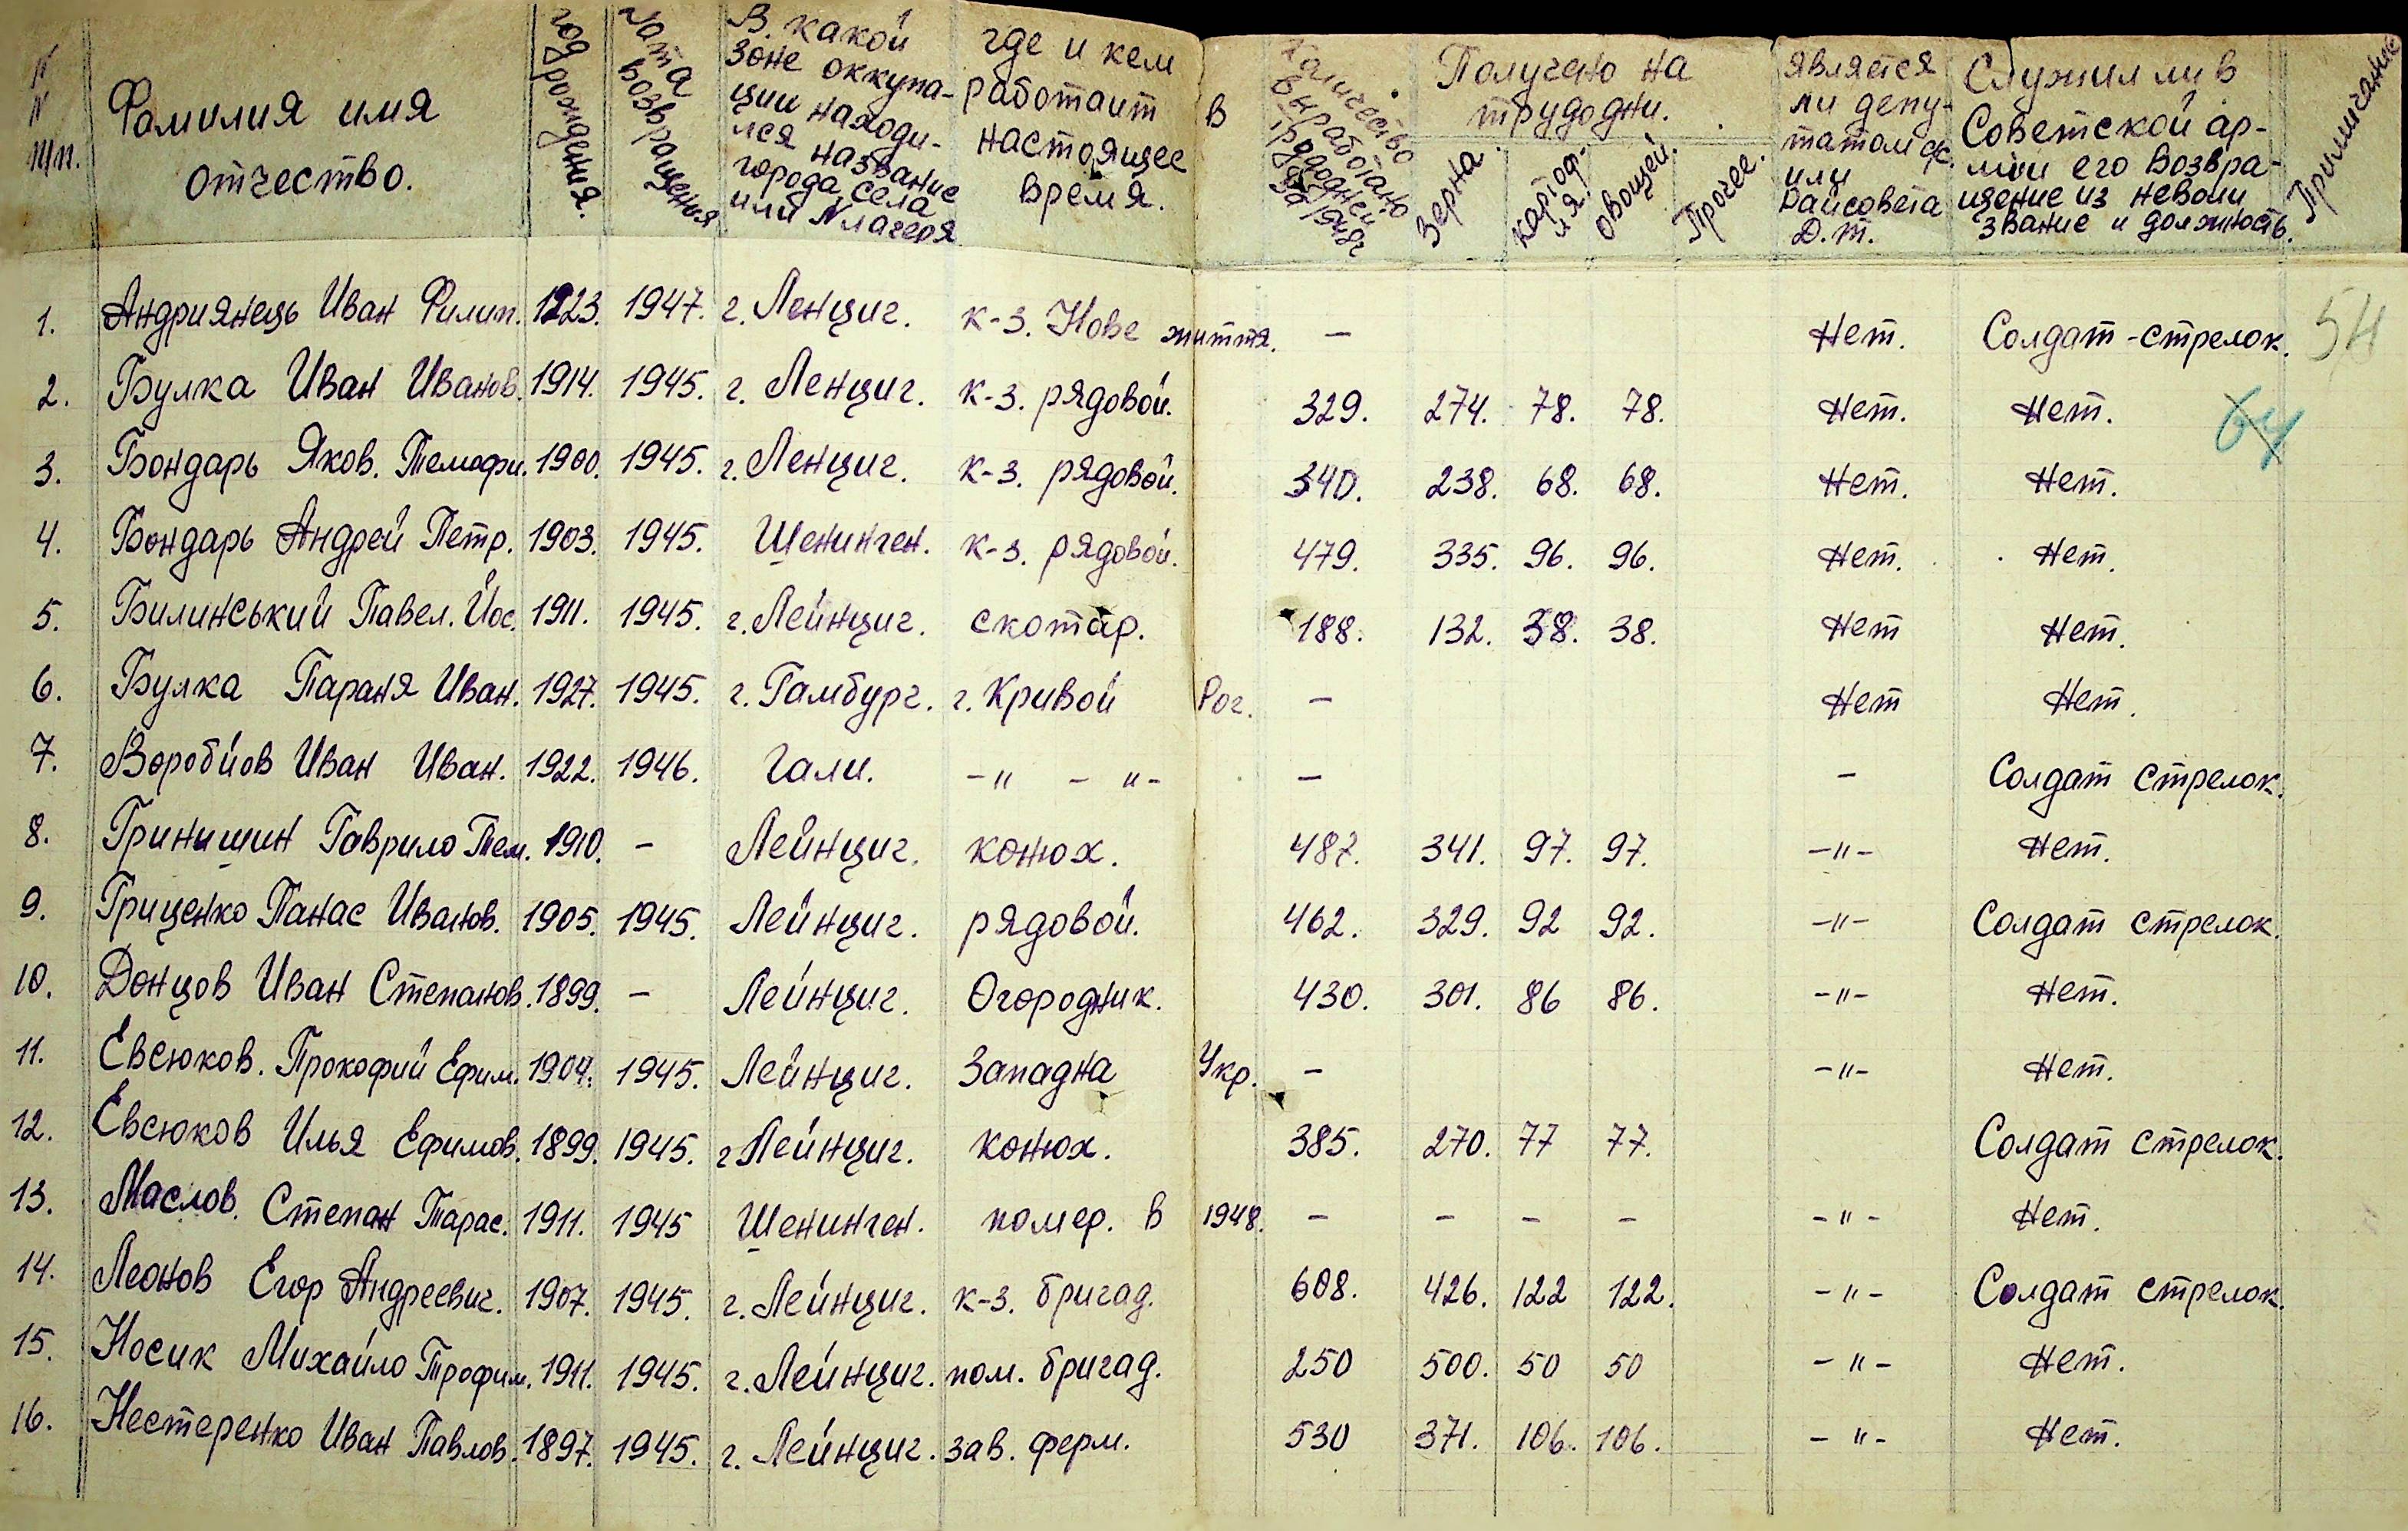 №
№
п/п.
Фамилия имя
отчество.
год рождения.
дата возвращенья
В какой
зоне оккупа-
ции находи-
лся название
города, села
или № лагеря
где и кем
работаит в
настоящее
время.
Количество
выработано
трудодней
за 1948г
Получено на
трудодни.
зерна
картоф.
ля
овощей.
Прочее.
является
ли депу-
татом с/с.
или
Райсовета
Д.т.
Служил ли в
Советской ар-
мии его возвра-
щение из неволи
звание и должность.
Примичание
1. Андриянець Иван Филип. 1923. 1947. г. Лепциг. к-з. Нове життя. – Нет. Солдат-стрелок. 54
2. Булка Иван Иванов. 1914. 1945. г. Лепциг. к-з. рядовой. 329. 274. 78. 78. Нет. Нет. 64
3. Бондарь Яков. Темофи. 1900. 1945. г. Лепциг. к-з. рядовой. 340. 238. 68. 68. Нет. Нет.
4. Бондарь Андрей Петр. 1903. 1945. Шенинген. к-з. рядовой. 479. 335. 96. 96. Нет. Нет.
5. Билинський Павел. Йос. 1911. 1945. г. Лейпциг. скотар. 188. 132. 38. 38. Нет Нет.
6. Булка Параня Иван. 1927. 1945. г. Гамбург. г. Кривой Рог. – Нет Нет.
7. Воробйов Иван Иван. 1922. 1946. Гали. –"– "– – – Солдат стрелок.
8. Гринишин Гаврило Тем. 1910. – Лейпциг. конюх. 487. 341. 97. 97. –"– Нет.
9. Гриценко Панас Иванов. 1905. 1945. Лейпциг. рядовой. 462. 329. 92 92. –"– Солдат стрелок.
10. Донцов Иван Степанов. 1899. – Лейпциг. Огородник. 430. 301. 86 86. –"– Нет.
11. Евсюков. Прокофий Ефим. 1904. 1945. Лейпциг. Западна Укр. – –"– Нет.
12. Евсюков Илья Ефимов. 1899. 1945. г Лейпциг. конюх. 385. 270. 77 77. Солдат стрелок.
13. Маслов. Степан Тарас. 1911. 1945 Шенинген. помер. в 1948. – – – – –"– Нет.
14. Леонов Егор Андреевич. 1907. 1945. г. Лейпциг. к-з. бригад. 608. 426. 122 122. –"– Солдат стрелок.
15. Носик Михайло Трофим. 1911. 1945. г. Лейпциг. пом. бригад. 250 500. 50 50 –"– Нет.
16. Нестеренко Иван Павлов. 1897. 1945. г. Лейпциг. зав. ферм. 530 371. 106. 106. –"– Нет.